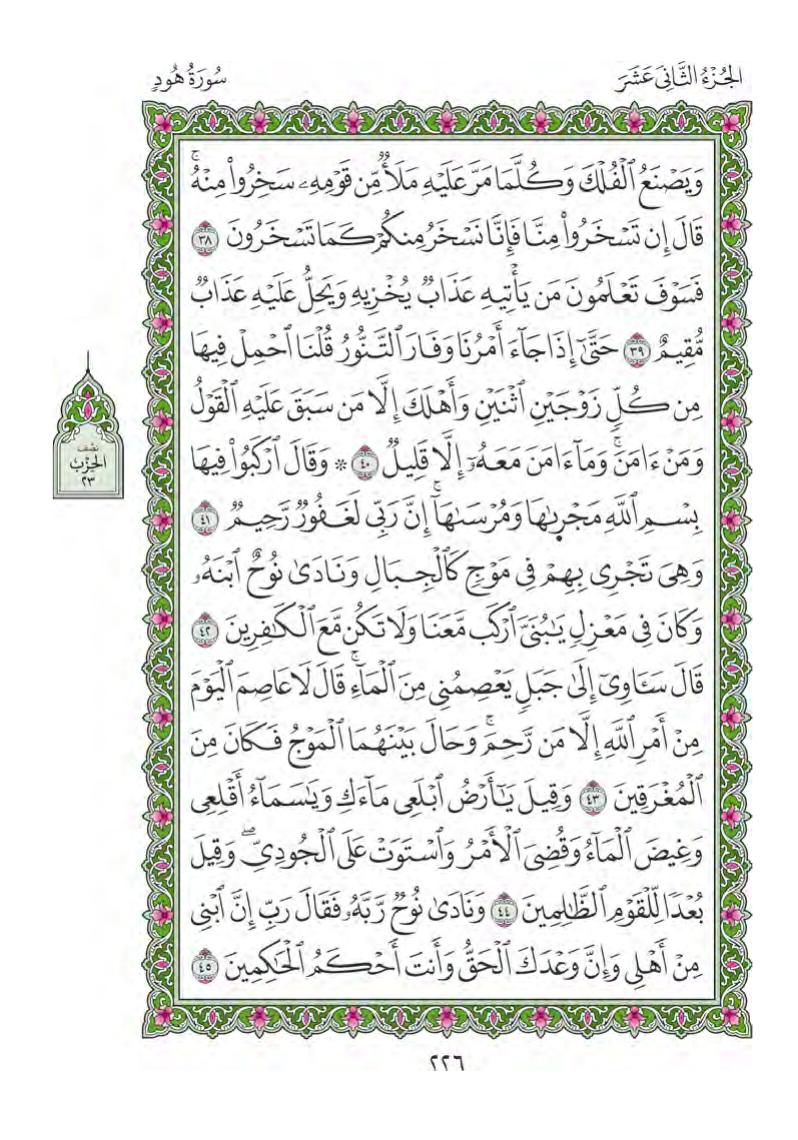 الجُزْءُ الثَّانِيَ عَشَرَ
سُورَةُ هُودٍ
وَيَصْنَعُ ٱلْفُلْكَ وَكُلَّمَا مَرَّ عَلَيْهِ مَلَأٌ مِّن قَوْمِهِۦ سَخِرُوا۟ مِنْهُ ۚ
قَالَ إِن تَسْخَرُوا۟ مِنَّا فَإِنَّا نَسْخَرُ مِنكُمْ كَمَا تَسْخَرُونَ ٣٨
فَسَوْفَ تَعْلَمُونَ مَن يَأْتِيهِ عَذَابٌ يُخْزِيهِ وَيَحِلُّ عَلَيْهِ عَذَابٌ
مُّقِيمٌ ٣٩ حَتَّىٰٓ إِذَا جَآءَ أَمْرُنَا وَفَارَ ٱلتَّنُّورُ قُلْنَا ٱحْمِلْ فِيهَا
مِن كُلٍّ زَوْجَيْنِ ٱثْنَيْنِ وَأَهْلَكَ إِلَّا مَن سَبَقَ عَلَيْهِ ٱلْقَوْلُ
وَمَنْ ءَامَنَ ۚ وَمَآ ءَامَنَ مَعَهُۥٓ إِلَّا قَلِيلٌ ٤٠ * وَقَالَ ٱرْكَبُوا۟ فِيهَا
بِسْمِ ٱللَّهِ مَجْر۪ىٰهَا وَمُرْسَىٰهَآ ۚ إِنَّ رَبِّى لَغَفُورٌ رَّحِيمٌ ٤١
وَهِىَ تَجْرِى بِهِمْ فِى مَوْجٍ كَٱلْجِبَالِ وَنَادَىٰ نُوحٌ ٱبْنَهُۥ
وَكَانَ فِى مَعْزِلٍ يَـٰبُنَىَّ ٱرْكَب مَّعَنَا وَلَا تَكُن مَّعَ ٱلْكَـٰفِرِينَ ٤٢
قَالَ سَـَٔاوِىٓ إِلَىٰ جَبَلٍ يَعْصِمُنِى مِنَ ٱلْمَآءِ ۚ قَالَ لَا عَاصِمَ ٱلْيَوْمَ
مِنْ أَمْرِ ٱللَّهِ إِلَّا مَن رَّحِمَ ۚ وَحَالَ بَيْنَهُمَا ٱلْمَوْجُ فَكَانَ مِنَ
ٱلْمُغْرَقِينَ ٤٣ وَقِيلَ يَـٰٓأَرْضُ ٱبْلَعِى مَآءَكِ وَيَـٰسَمَآءُ أَقْلِعِى
وَغِيضَ ٱلْمَآءُ وَقُضِىَ ٱلْأَمْرُ وَٱسْتَوَتْ عَلَى ٱلْجُودِىِّ ۖ وَقِيلَ
بُعْدًا لِّلْقَوْمِ ٱلظَّـٰلِمِينَ ٤٤ وَنَادَىٰ نُوحٌ رَّبَّهُۥ فَقَالَ رَبِّ إِنَّ ٱبْنِى
مِنْ أَهْلِى وَإِنَّ وَعْدَكَ ٱلْحَقُّ وَأَنتَ أَحْكَمُ ٱلْحَـٰكِمِينَ ٤٥
نصف
الحِزْبُ
٢٣
٢٢٦